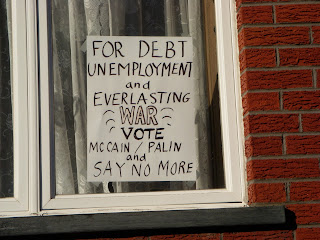 FOR DEBT
UNEMPLOYMENT
and
EVERLASTING
WAR
VOTE
MCCAIN / PALIN
and
SAY NO MORE